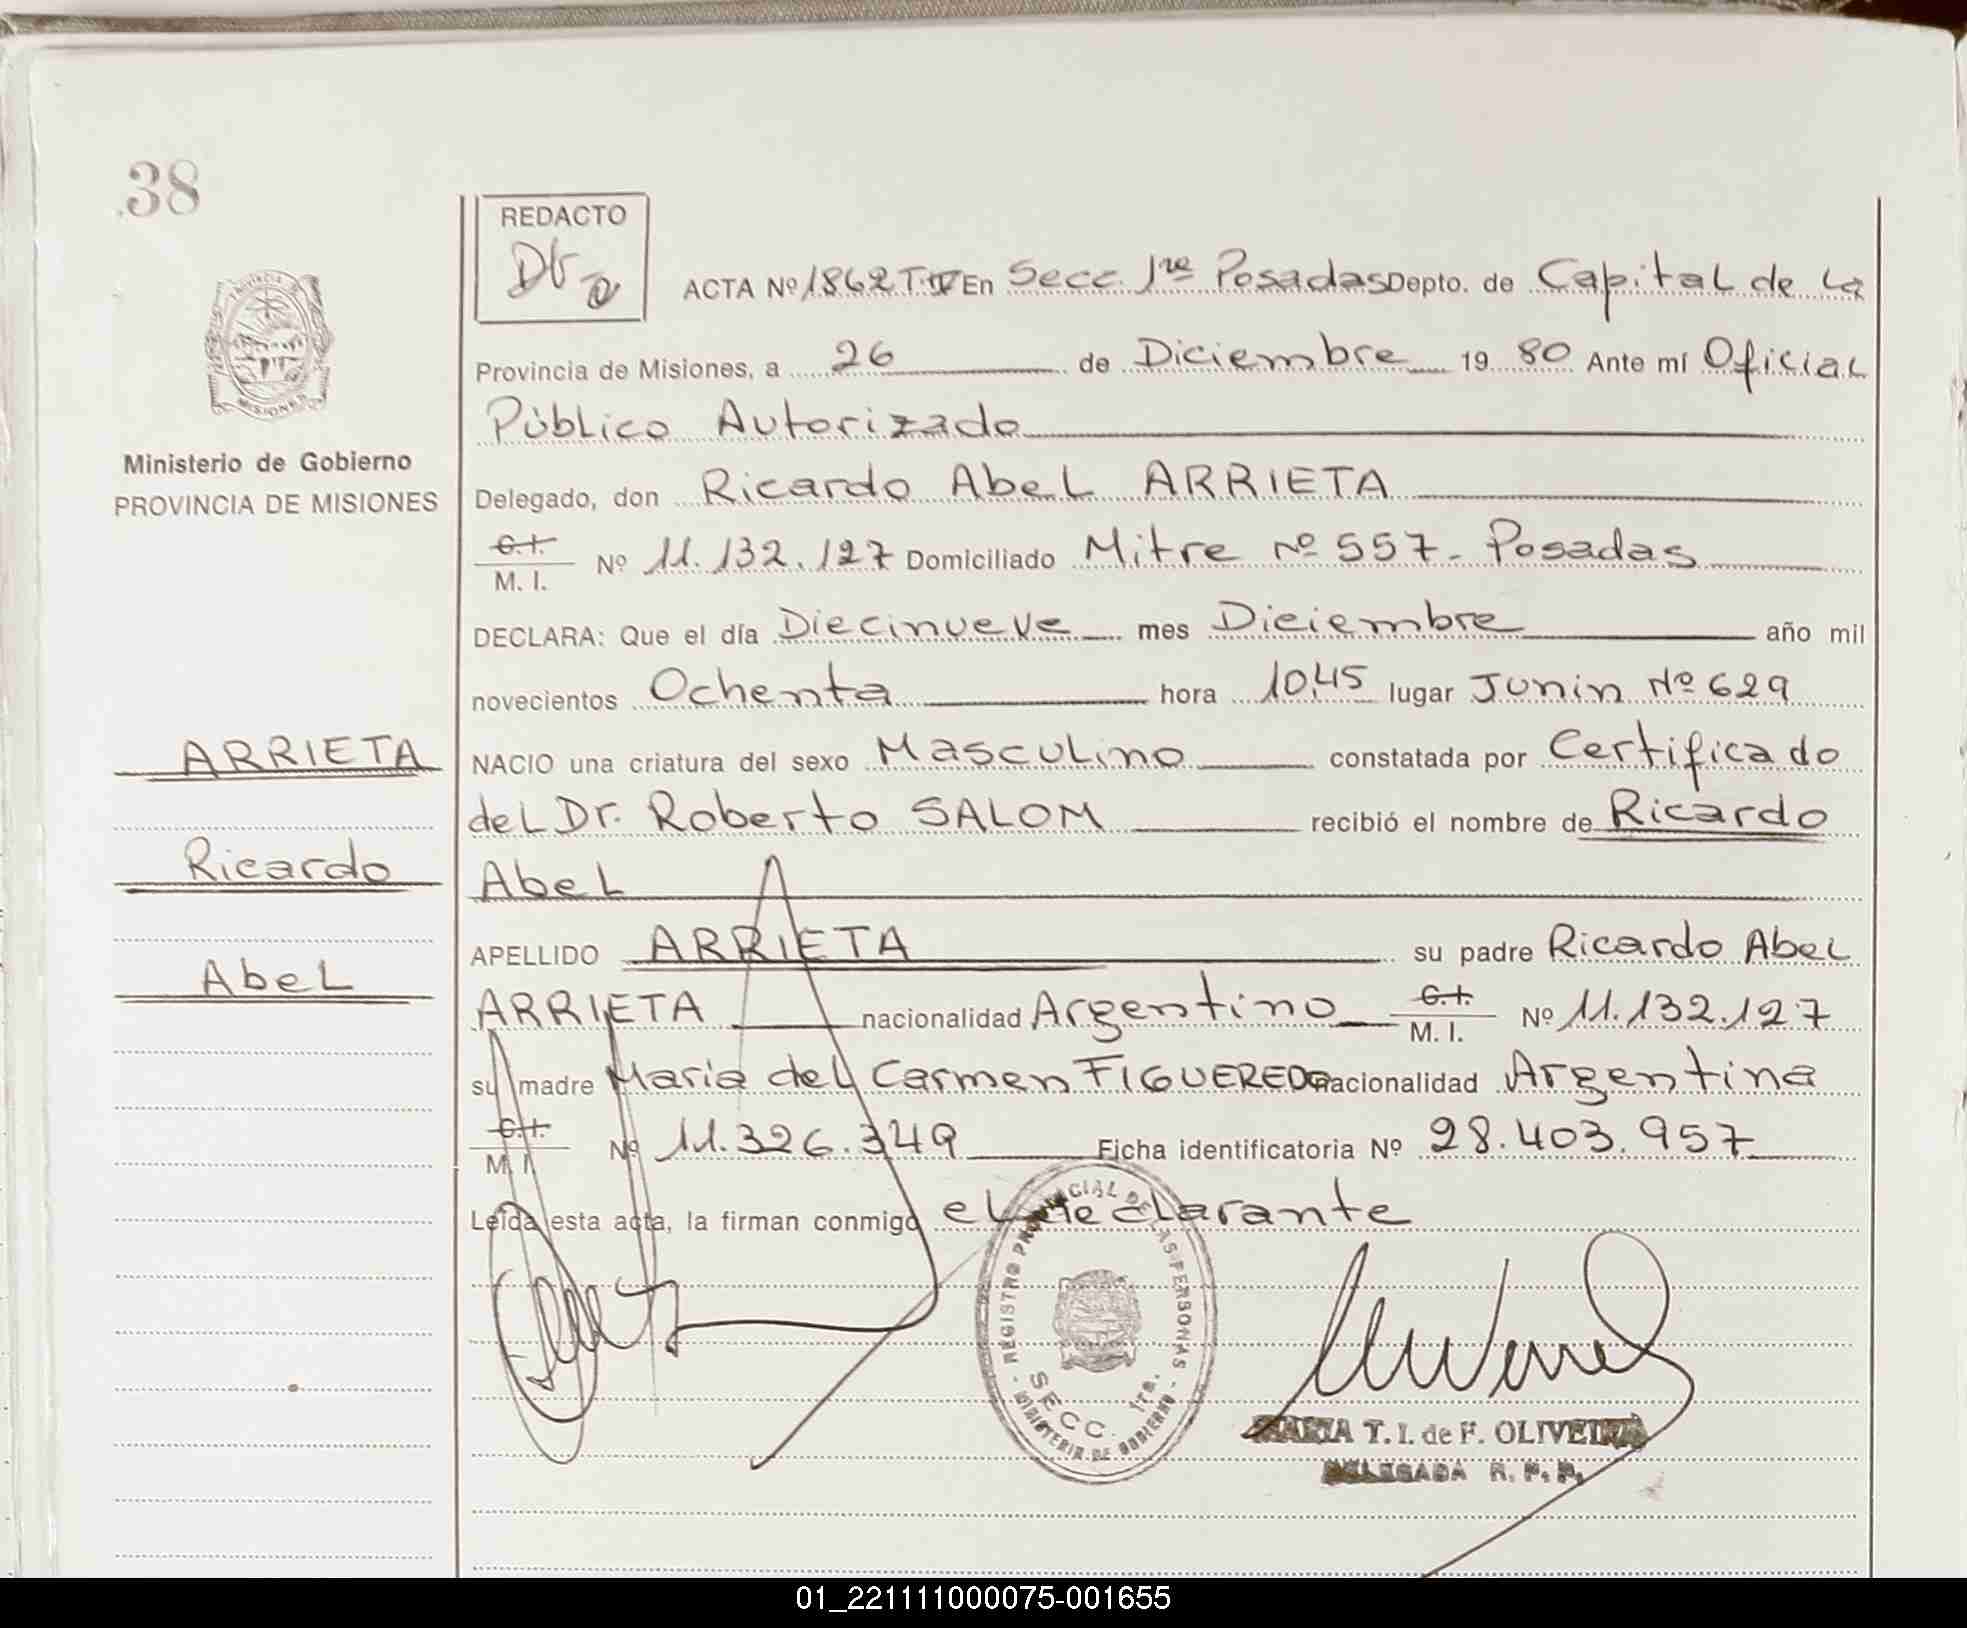 38
REDACTO
ACTA Nº 1862 T.IV En Secc. 1ra Posadas Depto. de Capital de La
Provincia de Misiones, a 26 de Diciembre 19 80 Ante mí Oficial
Público Autorizado
Delegado, don Ricardo Abel ARRIETA
C.I.
M. I. Nº 11.132.127 Domiciliado Mitre Nº 557 - Posadas
DECLARA: Que el día Diecinueve mes Diciembre año mil
novecientos Ochenta hora 10,45 lugar Junin Nº 629
NACIO una criatura del sexo Masculino constatada por Certificado
del Dr. Roberto SALOM recibió el nombre de Ricardo
Abel
APELLIDO ARRIETA su padre Ricardo Abel
ARRIETA nacionalidad Argentino C.I. M. I. Nº 11.132.127
su madre Maria del Carmen FIGUEREDO nacionalidad Argentina
C.I.
M. I. Nº 11.326.349 Ficha identificatoria Nº 28.403.957
Leída esta acta, la firman conmigo el declarante
PROVINCIA
MISIONES
Ministerio de Gobierno
PROVINCIA DE MISIONES
ARRIETA
Ricardo
Abel
REGISTRO PROVINCIAL DE LAS PERSONAS
SECC. 1ra.
MINISTERIO DE GOBIERNO
MARIA T. I. de F. OLIVEIRA
DELEGADA R. P. P.
01_221111000075-001655